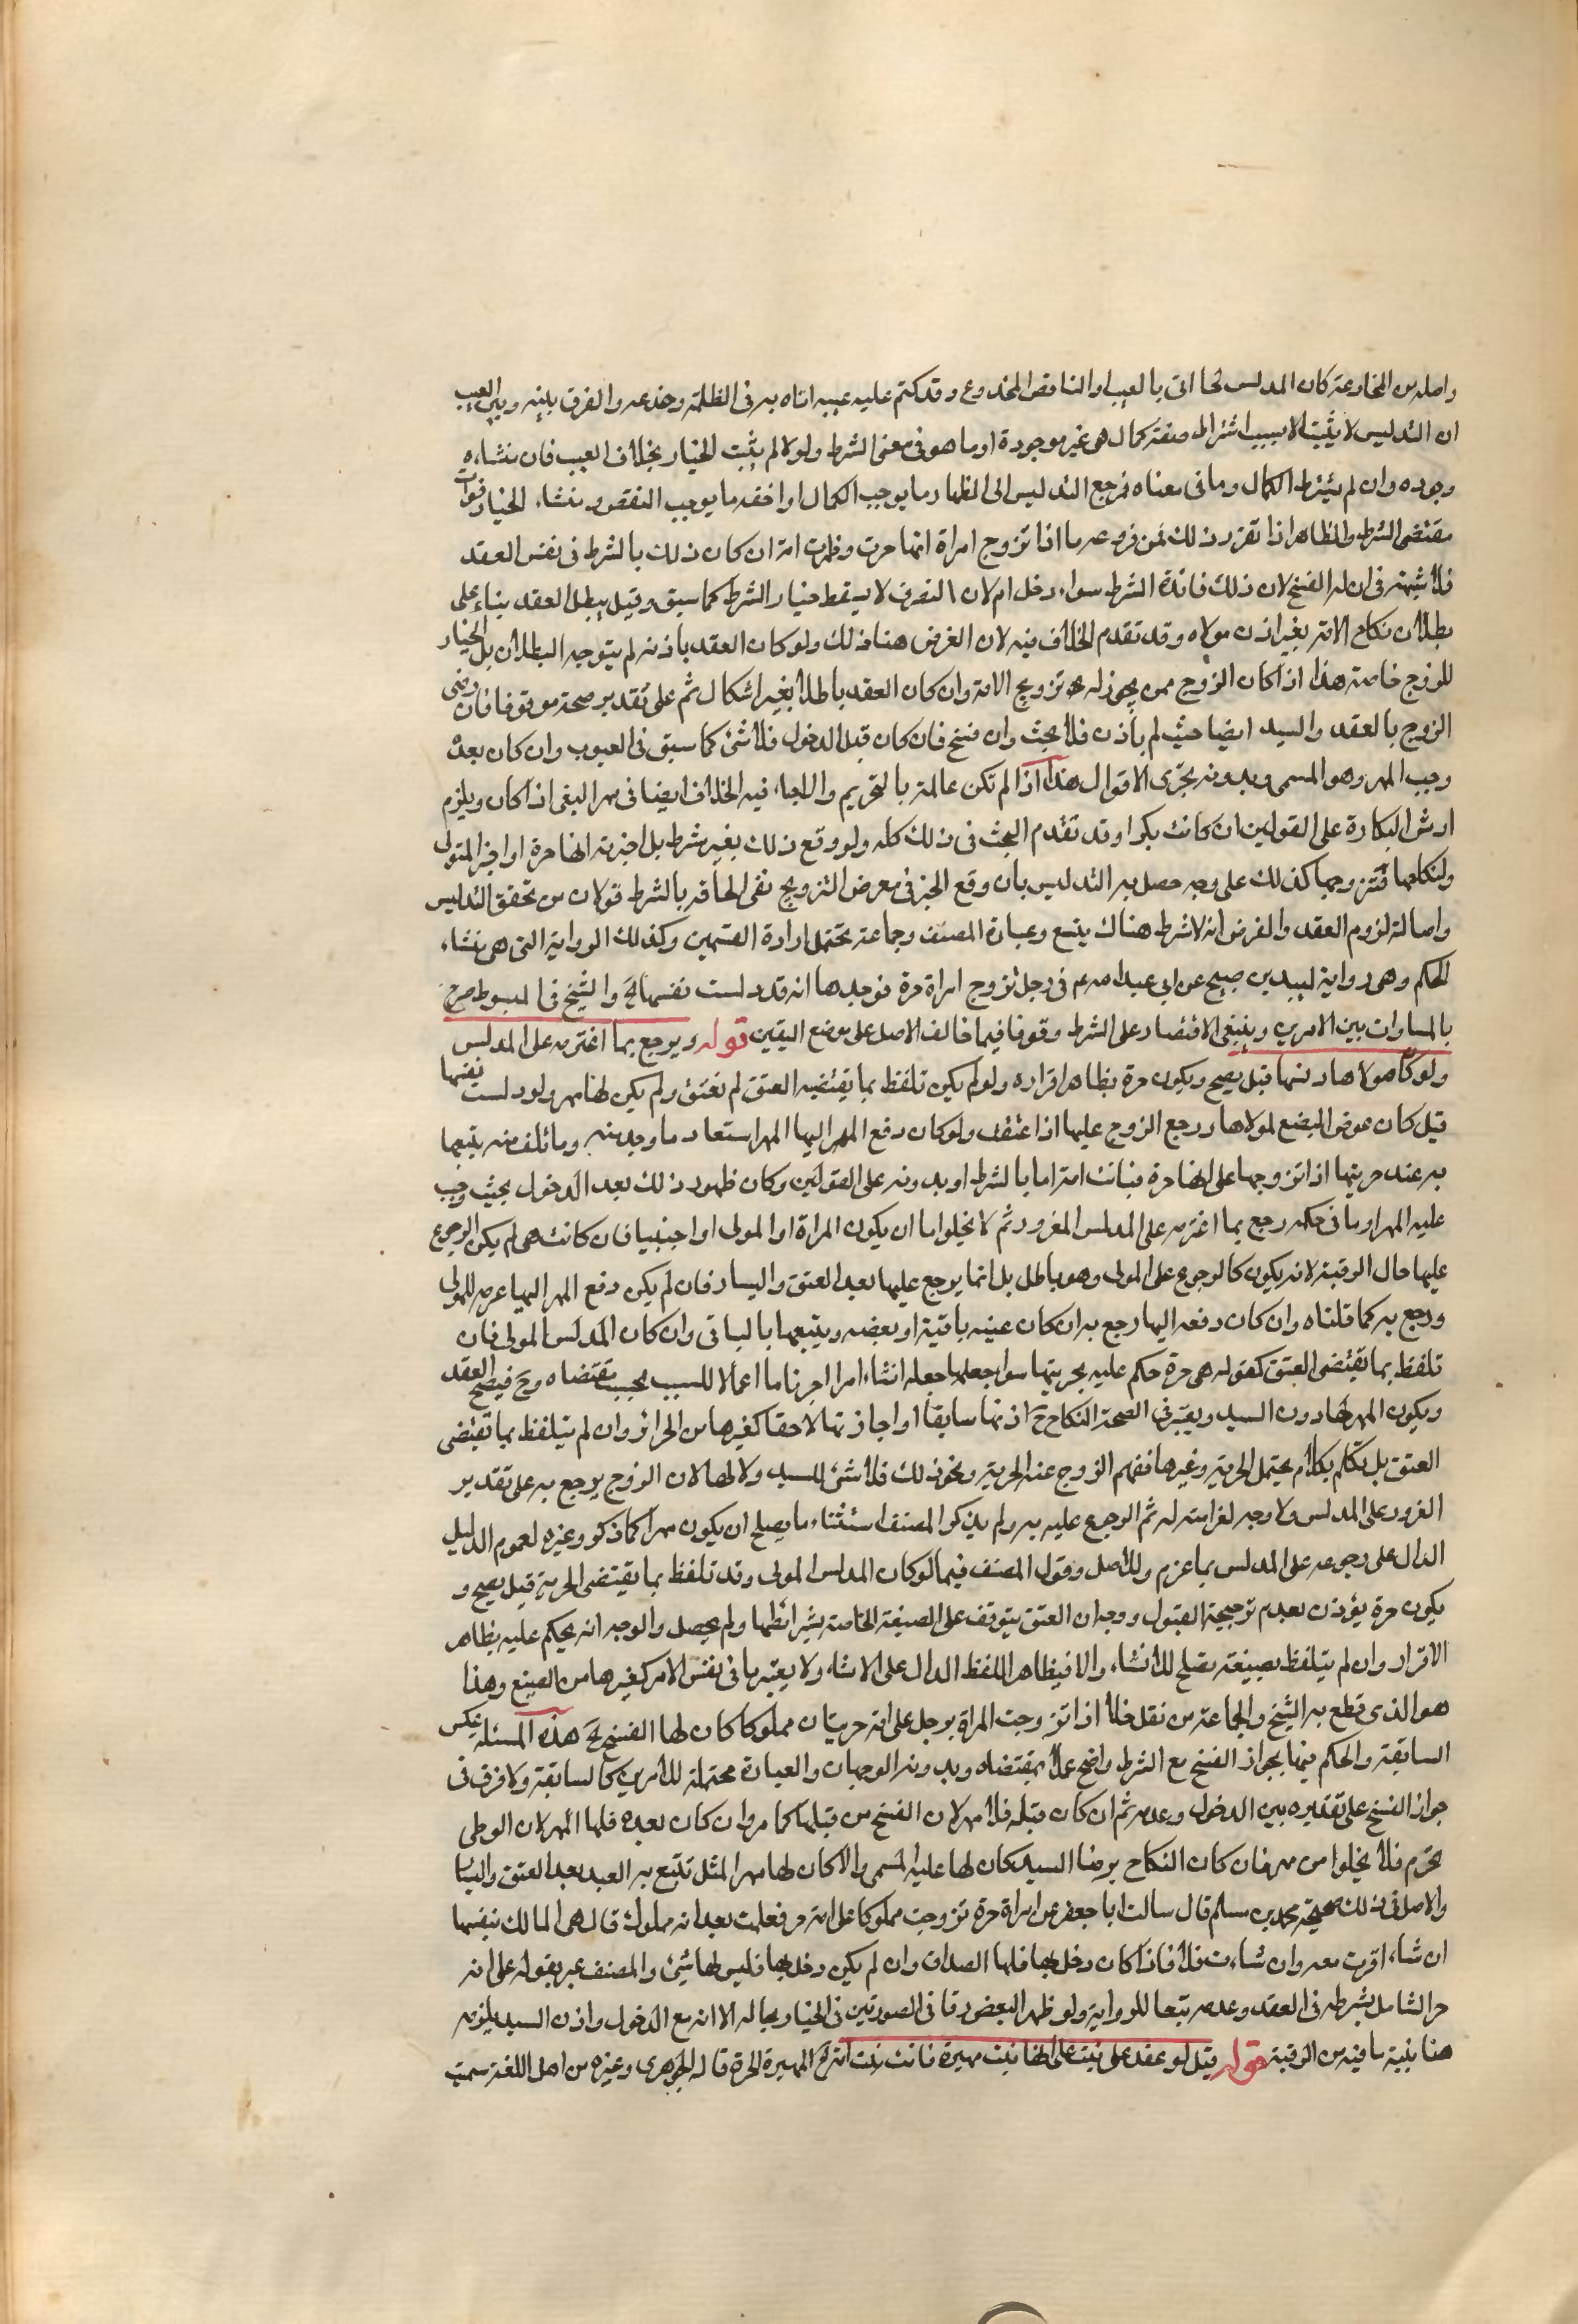 واصله من المخادعة كان المدلس لما اتى بالعيب او الناقص المخدوع وقد كتم عليه عيبه اتاه به فى الظلمة وخدعه والفرق بينه وبين العيب
ان التدليس لا يثبت الا بسبب اشتراط صفة كمال هى غير موجودة او ما هو فى معنى الشرط ولولا لم يثبت الخيار بخلاف العيب فان منشاءه
وجوده وان لم يشترط الكمال وما فى معناه فمرجع التدليس الى اظهار ما يوجب الكمال او اخفاء ما يوجب النقص ومنشاء الخيار فوات
مقتضى الشرط والظاهر اذا تقرر ذلك فمن فروعه ما اذا تزوج امراة انها حرة وظهرت امة ان كان ذلك بالشرط فى نفس العقد
فلا شبهة فى ان له الفسخ لان ذلك فائدة الشرط سواء دخل ام لا لان التصرف لا يسقط خيار الشرط كما سبق وقيل يبطل العقد بناء على
بطلان نكاح الامة بغير اذن مولاه وقد تقدم الخلاف فيه لان الغرض هنا ذلك ولو كان العقد باذنه لم يتوجه البطلان بل الخيار
للزوج خاصة هذا اذا كان الزوج ممن يجوز له تزويج الامة وان كان العقد باطلا بغير اشكال ثم على تقدير صحة موقوفا فان رضى
الزوج بالعقد والسيد ايضا حيث لم ياذن فلا بحث وان فسخ فان كان قبل الدخول فلا شئ كما سبق فى العيوب وان كان بعده
وجب المهر وهو المسمى وبدونه يجرى الاقوال هذا اذا لم تكن عالمة بالتحريم والا جاء فيه الخلاف ايضا فى مهر البغى اذا كان ويلزم
ارش البكارة على القولين ان كانت بكرا وقد تقدم البحث فى ذلك كله ولو وقع ذلك بغير شرط بل اخبرته انها حرة او اخبر المتولى
ولنكاحها فتزوجها كذلك على وجه حصل به التدليس بان وقع الخبر فى معرض التزويج ففى الحاقه بالشرط قولان من تحقق التدليس
واصالة لزوم العقد والفرض انه لا شرط هناك يتبع وعبارة المصنف وجماعة تحتمل ارادة القسمين وكذلك الرواية التى هى منشاء
الحكم وهى رواية لبيد بن صبيح عن ابى عبد الله ع م فى رجل تزوج امراة حرة فوجدها امة قد دلست نفسها له والشيخ فى المبسوط صرح
بالمساوات بين الامرين وينبغى الاقتصار على الشرط وقوفا فيما خالف الاصل على موضع اليقين قوله ويرجع بما اغترمه على المدلس
ولو كان مولاها دلسها قيل يصح ويكون حرة بظاهر اقراره ولو لم يكن تلفظ بما يقتضيه العتق لم تعتق ولم يكن لها مهر ولو دلست نفسها
قيل كان عوض البضع لمولاها ورجع الزوج عليها اذا عتقت ولو كان دفع المهر اليها المهر استعاد ما وجد منه وما تلف منه يتبعها
به عند حريتها اذا تزوجها على انها حرة فبانت امة اما بالشرط او بدونه على القولين وكان ظهور ذلك بعد الدخول بحيث وجب
عليه المهر او ما فى حكمه رجع بما اغترمه على المدلس المغرور ثم لا يخلوا ما ان يكون المراة او المولى او اجنبيا فان كانت هى لم يكن الرجوع
عليها حال الرقية لانه يكون كالرجوع على المولى وهو باطل بل انما يرجع عليها بعد العتق واليسار فان لم يكن دفع المهر اليها غرمه للمولى
ورجع به كما قلناه وان كان دفعه اليها رجع به ان كان عينه باقية او بعضه ويتبعها بالباقى وان كان المدلس المولى فان
تلفظ بما يقتضى العتق كقوله هى حرة حكم عليه بحريتها سواء جعلها جعله انشاء امرا اجرناما اعمالا للسبب بحسب مقتضاه وح فيصح العقد
ويكون المهر لها دون السيد ويعتبر فى الصحة النكاح ح اذنها سابقا او اجازتها لاحقا كغيرها من الحرائر وان لم يتلفظ بما يقتضى
العتق بل تكلم بكلام يحتمل الحرية وغيرها ففهم الزوج عنه الحرية ونحو ذلك فلا شئ للسيد ولا لها لان الزوج يرجع به على تقدير
الغرور على المدلس ولا وجه لغرامته له ثم الرجوع عليه به ولم يذكر المصنف استثناء ما يصلح ان يكون مهرا كما ذكر وغيره لعموم الدليل
الدال على رجوعه على المدلس بما غرم وللاصل وقول المصنف فيما لو كان المدلس المولى وقد تلفظ بما يقتضى الحرية قيل يصح و
يكون حرة يؤذن بعدم ترجيحة القبول ووجه ان العتق يتوقف على الصيغة الخاصة بشرائطها ولم يحصل والوجه انه يحكم عليه بظاهر
الاقرار وان لم يتلفظ بصيغة تصلح للانشاء والا فبظاهر اللفظ الدال على الانشاء ولا يعتبر ما فى نفس الامر كغيرها من الصيغ وهذا
هو الذى قطع به الشيخ والجماعة من نقل خلا اذا تزوجت المراة برجل على انه حر فبان مملوكا كان لها الفسخ له هذه المسئلة عكس
السابقة والحكم فيها بجواز الفسخ مع الشرط واضح عملا بمقتضاه وبدونه الوجهان والعبارة محتملة للامرين كالسابقة ولا فرق فى
جواز الفسخ على تقديره بين الدخول وعدمه ثم ان كان قبله فلا مهر لان الفسخ من قبلها كما مر وان كان بعده فلها المهر لان الوطى
محرم فلا يخلوا من مهر فان كان النكاح برضا السيد كان لها عليه المسمى والا كان لها مهر المثل تتبع به العبد بعد العتق واليسا
والاصل فى ذلك صحيحة محمد بن مسلم قال سالت ابا جعفر عن امراة حرة تزوجت مملوكا على انه حر فعلمت بعد انه مملوك قال هى املك بنفسها
ان شاءت اقرت معه وان شاءت فلا فاذا كان دخل بها فلها الصداق وان لم يكن دخل بها فليس لها شئ والمصنف عبر بقوله على انه
حر الشامل بشرطه فى العقد وعدمه تبعا للرواية ولو ظهر البعض رقا فى الصورتين فى الخيار بحاله الا انه مع الدخول واذن السيد يلزمه
هنا بنسبة ما فيه من الرقية قوله قيل لو عقد على بنت على انها بنت مهيرة فبانت بنت امة له المهيرة الحرة قاله الجوهرى وغيره من اهل اللغة سميت